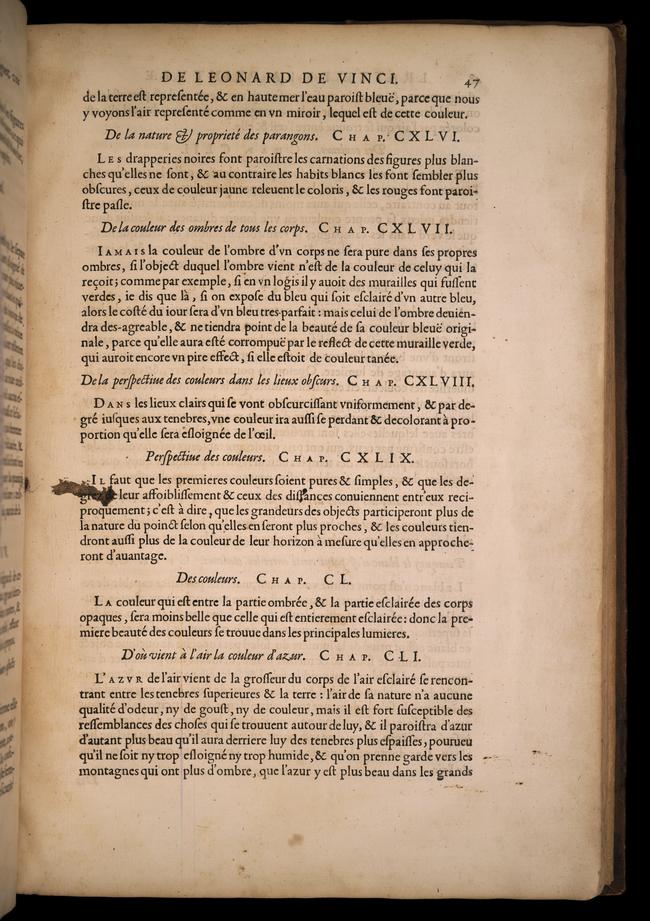 DE LEONARD DE VINCI. 47
de la terre est representée, & en haute mer l'eau paroist bleuë, parce que nous
y voyons l'air representé comme en vn miroir, lequel est de cette couleur.
De la nature & proprieté des parangons. CHAP. CXLVI.
LES drapperies noires font paroistre les carnations des figures plus blan-
ches qu'elles ne sont, & au contraire les habits blancs les font sembler plus
obscures, ceux de couleur jaune releuent le coloris, & les rouges font paroi-
stre pasle.
De la couleur des ombres de tous les corps. CHAP. CXLVII.
IAMAIS la couleur de l'ombre d'vn corps ne sera pure dans ses propres
ombres, si l'object duquel l'ombre vient n'est de la couleur de celuy qui la
reçoit; comme par exemple, si en vn logis il y auoit des murailles qui fussent
verdes, ie dis que là, si on expose du bleu qui soit esclairé d'vn autre bleu,
alors le costé du iour sera d'vn bleu tres-parfait: mais celui de l'ombre deuien-
dra des-agreable, & ne tiendra point de la beauté de sa couleur bleuë origi-
nale, parce qu'elle aura esté corrompuë par le reflect de cette muraille verde,
qui auroit encore vn pire effect, si elle estoit de couleur tanée.
De la perspectiue des couleurs dans les lieux obscurs. CHAP. CXLVIII.
DANS les lieux clairs qui se vont obscurcissant vniformement, & par de-
gré iusques aux tenebres, vne couleur ira aussi se perdant & decolorant à pro-
portion qu'elle sera esloignée de l'œil.
Perspectiue des couleurs. CHAP. CXLIX.
IL faut que les premieres couleurs soient pures & simples, & que les de-
grez de leur affoiblissement & ceux des distances conuiennent entr'eux reci-
proquement; c'est à dire, que les grandeurs des objects participeront plus de
la nature du poinct selon qu'elles en seront plus proches, & les couleurs tien-
dront aussi plus de la couleur de leur horizon à mesure qu'elles en approche-
ront d'auantage.
Des couleurs. CHAP. CL.
LA couleur qui est entre la partie ombrée, & la partie esclairée des corps
opaques, sera moins belle que celle qui est entierement esclairée: donc la pre-
miere beauté des couleurs se trouue dans les principales lumieres.
D'où vient à l'air la couleur d'azur. CHAP. CLI.
L'AZVR de l'air vient de la grosseur du corps de l'air esclairé se rencon-
trant entre les tenebres superieures & la terre: l'air de sa nature n'a aucune
qualité d'odeur, ny de goust, ny de couleur, mais il est fort susceptible des
ressemblances des choses qui se trouuent autour de luy, & il paroistra d'azur
d'autant plus beau qu'il aura derriere luy des tenebres plus espaisses, pourueu
qu'il ne soit ny trop esloigné ny trop humide, & qu'on prenne garde vers les
montagnes qui ont plus d'ombre, que l'azur y est plus beau dans les grands